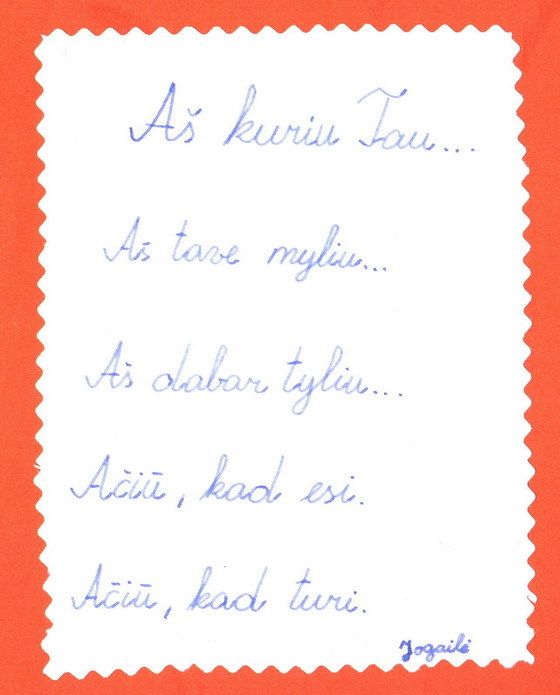 Aš kuriu Tau...
Aš tave myliu...
Aš dabar tyliu...
Ačiū, kad esi.
Ačiū, kad turi.
Jogailė